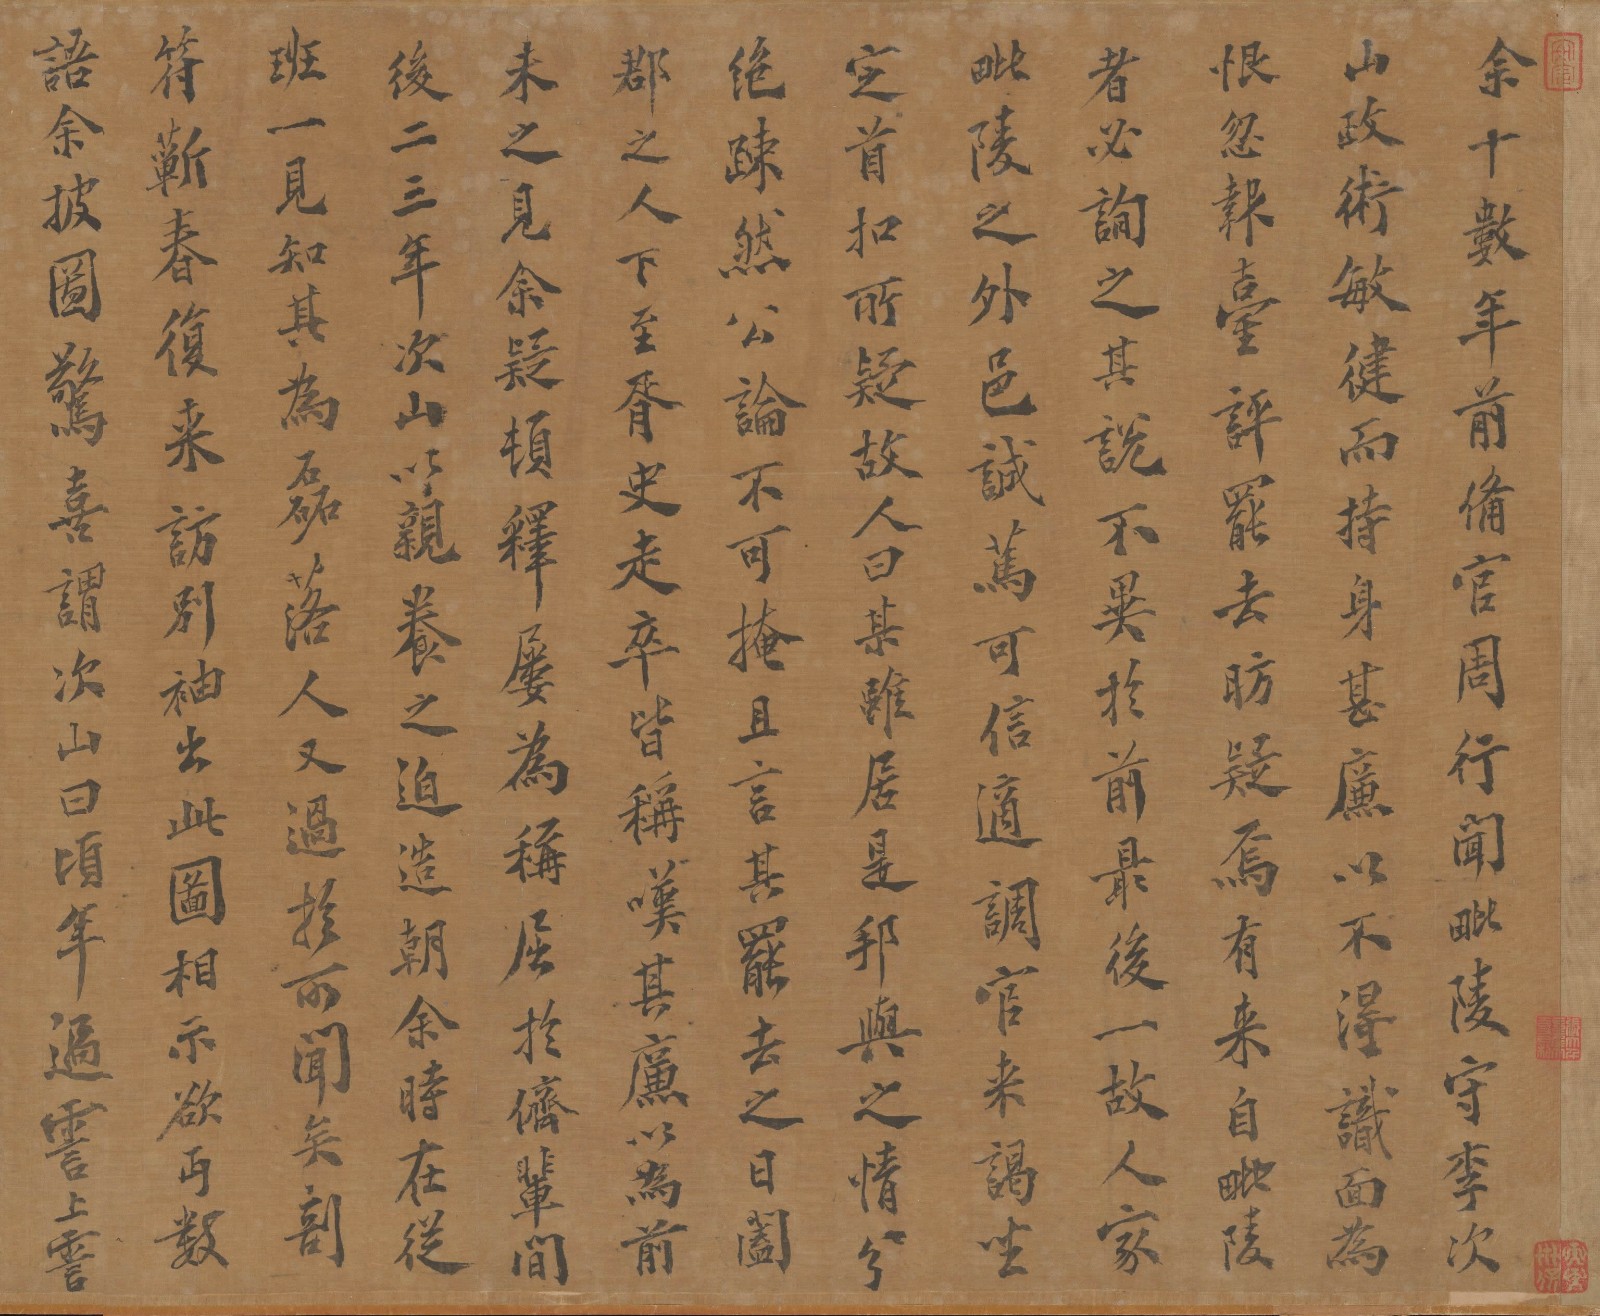 余十數年前備官周行聞毗陵守李次
山政術敏健而持身甚廉以不淂識面為
恨忽報臺評罷去昉疑焉有来自毗陵
者必詢之其説不異於前最後一故人家
毗陵之外邑誠篤可信適調官来謁坐
定首扣所疑故人曰某雖居是邦與之情分
絶踈然公論不可掩且言其罷去之日闔
郡之人下至胥史走卒皆稱嘆其廉以為前
未之見余疑頓釋屢為稱屈於儕輩間
後二三年次山以親養之迫造朝余時在從
班一見知其為磊落人又過於所聞矣剖
符蘄春復来訪別袖出此圖相示欲丐數
語余披圖驚喜謂次山曰頃年過霅上霅